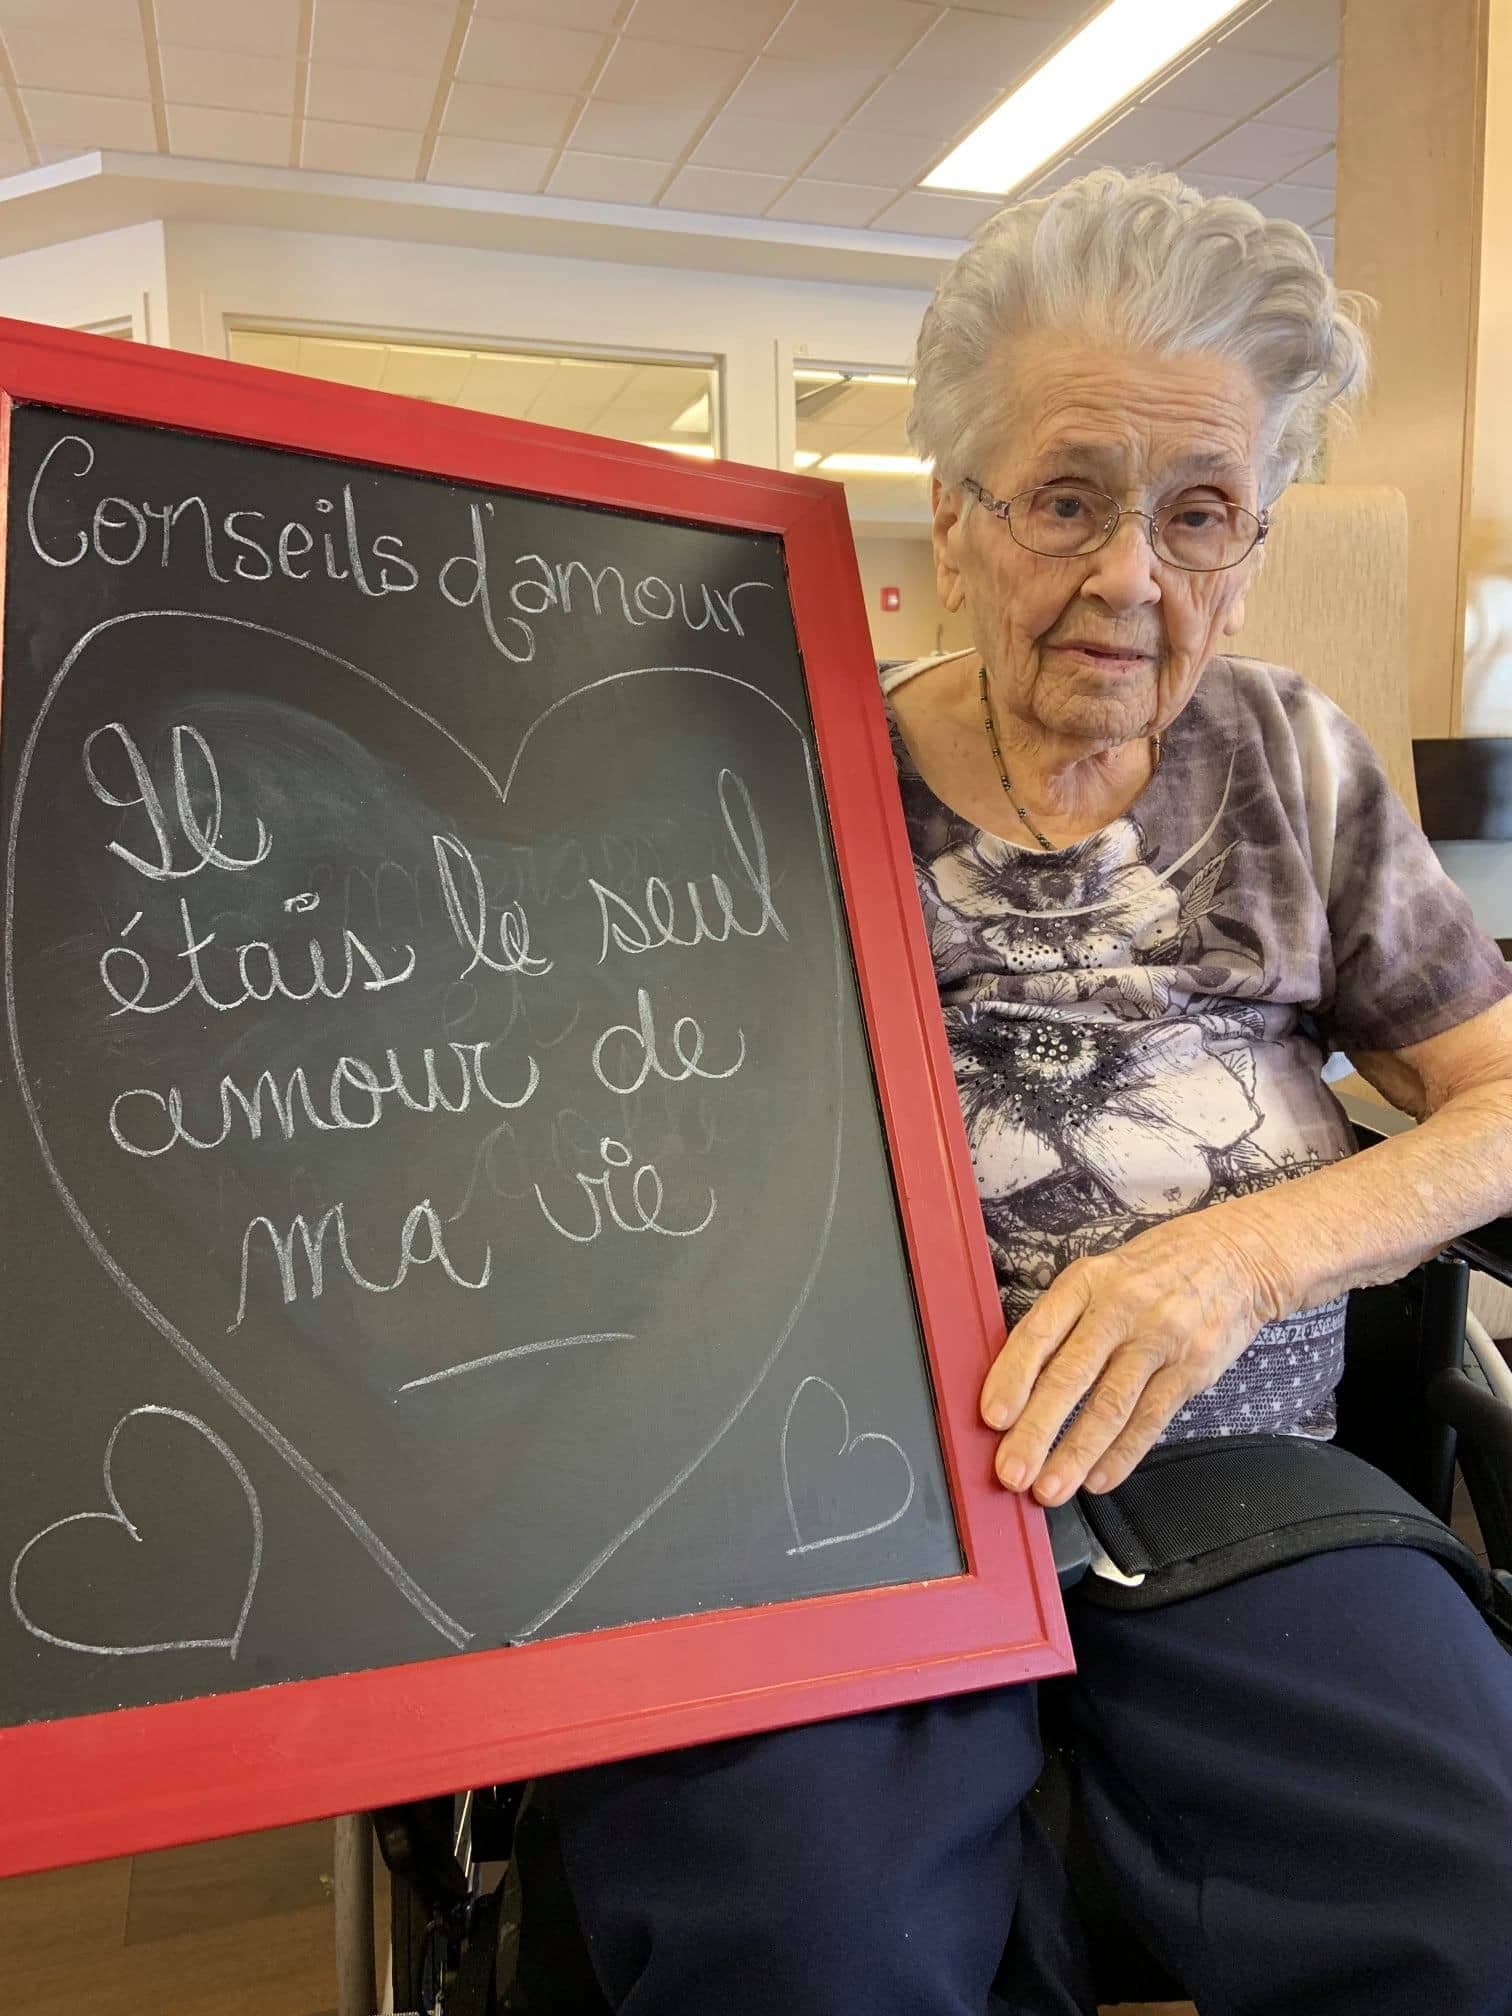 Conseils d'amour
Il
étais le seul
amour de
ma vie